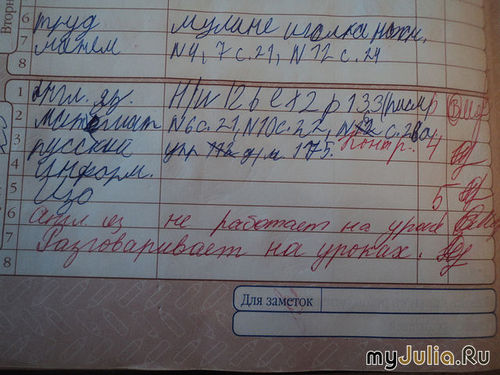 Вторни
6 труд мулине иголка ножн.
7 матем N4, 7 с.21, N12 с.24
8
1 Англ. яз. H/w 12 b ex2 p 133 (письм)
2 математ N6 с.21, N10 с.22, с.23
3 русский упр 175. Контр. 4
4 Информ.
5 Изо 5
6 Англ яз не работает на уроке
7 Разговаривает на уроках.
8
Для заметок
myJulia.Ru